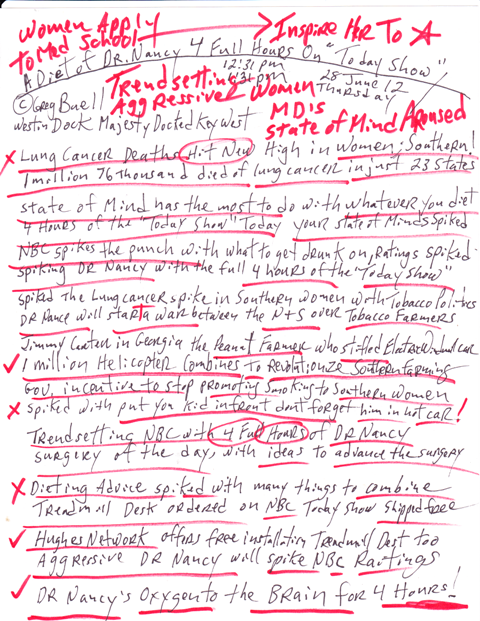 Women Apply
To Med School → Inspire Her To ☆
A Diet of Dr. Nancy 4 Full Hours On "Today Show"
12:31 pm
Trendsetting 6:31 pm 28 June 12
Aggressive Women Thursday
© Greg Buell MD's
Westin Dock Majesty Docked Key West State of Mind Aroused
x Lung Cancer Deaths Hit New High in Women; Southern!
1 million 76 thousand died of lung cancer in just 23 States
State of Mind has the most to do with whatever you diet
4 Hours of the "Today Show" Today your State of Minds Spiked
NBC spikes the punch with what to get drunk on, Ratings spiked
spiking DR Nancy with the full 4 hours of the "Today Show"
Spiked the Lung cancer spike in Southern Women with Tobacco Politics
DR Nance will start a war between the N+S over Tobacco Farmers
Jimmy Carter in Georgia the Peanut Farmer who stifled Elec car
✓ 1 million Helicopter Combines to Revolutionze Southern Farming
Gov. incentive to stop promoting Smoking to Southern Women
x Spiked with put you kid in front dont forget him in hot car!
Trendsetting NBC with 4 Full Hours of DR Nancy
surgery of the day, with ideas to advance the surgory
x Dieting Advice spiked with many things to combine
Treadmill Desk ordered on NBC Today Show Shipped free
✓ Hughes Network offers free installation Treadmill Dest too
Aggressive DR Nancy will spike NBC Raitings
✓ DR Nancy's Oxygen to the Brain for 4 Hours!